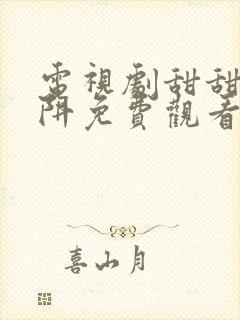 電視劇甜甜
阱免費觀看
喜山月